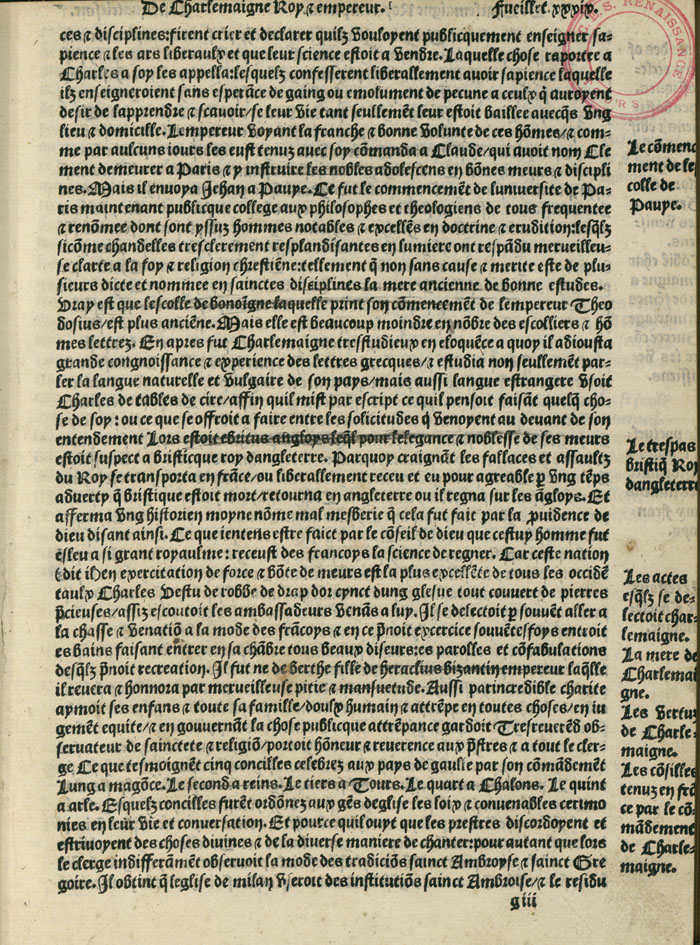 De Charlemaigne Roy, & empereur.
Fueillet. xxxix.
C. E. S. RENAISSANCE
ces & disciplines: firent crier et declarer quilz vouloyent publicquement enseigner sa-
pience & les ars liberaulx et que leur science estoit a vendre. Laquelle chose raportee a
Charles a soy les appella: lesquelz confesserent liberallement avoir sapience laquelle
ilz enseigneroient sans esperāce de gaing ou emolument de pecune a ceulx q̄ auroyent
desir de lapprendre & scavoir/ se leur vie tant seullemēt leur estoit baillee avecq̄s vng
lieu & domicille. Lempereur voyant la franche & bonne volunte de ces hōmes/ & com-
me par aulcuns iours les eust tenuz avec soy cōmanda a Claude/ qui avoit nom Cle
ment demeurer a Paris & y instruire les nobles adolescens en bōnes meurs & discipli
nes. Mais il envoya Jehan a Pavye. Ce fut le commencemēt de luniversite de Pa-
ris maintenant publicque college aux philosophes et theologiens de tous frequentee
& renōmee dont sont yssuz hommes notables & excellēs en doctrine & erudition: lesq̄lz
sicōme chandelles tresclerement resplandisantes en lumiere ont respādu merveilleu-
se clarte a la foy & religion chrestiēne: tellement q̄ non sans cause & merite este de plu-
sieurs dicte et nommee en sainctes disciplines la mere ancienne de bonne estudes.
Vray est que lescolle de bonoīgne laquelle print son cōmencemēt de lempereur Theo
dosius/ est plus anciēne. Mais elle est beaucoup moindre en nōbre des escolliers & hō
mes lettrez. En apres fut Charlemaigne tresstudieux en eloquēce a quoy il adiousta
grande congnoissance & experience des lettres grecques/ & estudia non seullement par-
ler la langue naturelle et vulgaire de son pays/ mais aussi langue estrangere vsoit
Charles de tables de cire/ affin quil mist par escript ce quil pensoit faisāt quelq̄ cho-
se de soy: ou ce que se offroit a faire entre les solicitudes q̄ venoyent au devant de son
entendement Lors estoit ebritus angloys leq̄l pour lelegance & noblesse de ses meurs
estoit suspect a bristicque roy dangleterre. Parquoy craignāt les fallaces et assaultz
du Roy se transporta en frāce/ ou liberallement receu et eu pour agreable p̱ vng tēps
adverty q̄ bristique estoit mort/ retourna en angleterre ou il regna sur les āgloys. Et
afferma vng historien moyne nōme mal mesberie q̄ cela fut fait par la p̱uidence de
dieu disant ainsi. Ce que ientens estre faict par le cōseil de dieu que cestuy homme fut
esleu a si grant royaulme: receust des francoys la science de regner. Car ceste nation
(dit il) en exercitation de force & bōte de meurs est la plus excellēte de tous les occidē
taulx Charles vestu de robbe de drap dor cynct dung glesue tout couvert de pierres
p̄cieuses/ assiz escoutoit les ambassadeurs venās a luy. Il se delectoit p̱ souvēt aller a
la chasse & venatiō a la mode des frācoys & en ce p̄noit excercice souvētesfoys entroit
es bains faisant entrer en sa chābre tous beaux diseurs: es parolles et cōfabulations
desq̄lz p̄noit recreation. Il fut ne de berthe fille de heraclius bizantin empereur laq̄lle
il revera & honnora par merveilleuse pitie & mansuetude. Aussi par incredible charite
aymoit ses enfans & toute sa famille/ doulx humain & attrēpe en toutes choses/ en iu
gemēt equite/ & en gouvernāt la chose publicque attrēpance gardoit Tresreverēd ob-
servateur de sainctete & religiō/ portoit hōneur & reverence aux p̄stres & a tout le cler-
ge Ce que tesmoignēt cinq concilles celebrez aux pays de gaulle par son cōmādemēt
Lung a magōce. Le second a reins. Le tiers a Tours. Le quart a Chalons. Le quint
a arle. Esquelz concilles furēt ordōnez aux gēs deglise les loix & convenables cerimo
nies en leur vie et conversation. Et pource quil ouyt que les prestres discordoyent et
estrivoyent des choses divines & de la diverse maniere de chanter: pour autant que lors
le clerge indifferāmēt observoit la mode des tradiciōs sainct Ambroyse & sainct Gre
goire. Il obtint q̄ leglise de milan vseroit des institutiōs sainct Ambroise/ & le residu
giii
Le cōmenc
ment de le
colle de
Pavye.
Le trespas
bristiq̄ Roy
dangleterre
Les actes
esq̄lz se de-
lectoit char-
lemaigne.
La mere de
Charlemai
gne.
Les vertuz
de Charle-
maigne.
Les cōsilles
tenuz en frā
ce par le cō-
māndement
de Charle-
maigne.